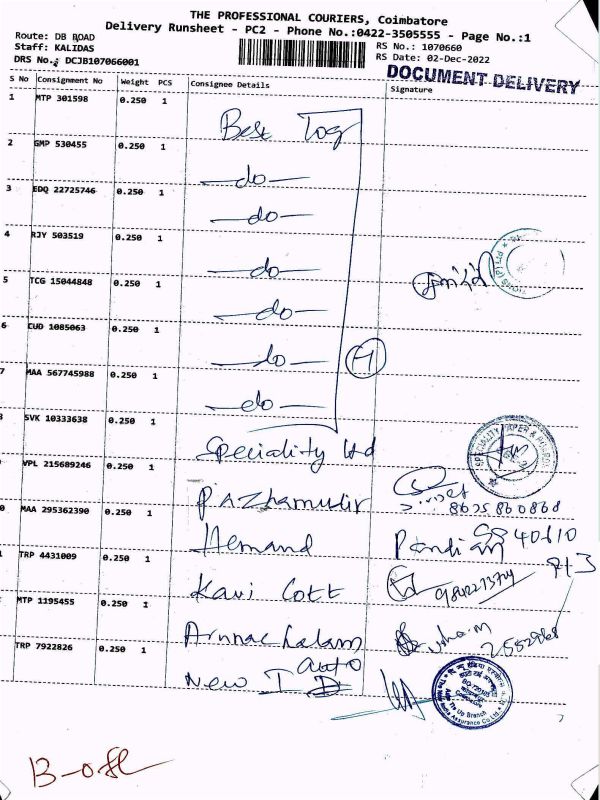 THE PROFESSIONAL COURIERS, Coimbatore
Delivery Runsheet - PC2 - Phone No.:0422-3505555 - Page No.:1
Route: DB ROAD
Staff: KALIDAS
DRS No.: DCJB107066001
RS No.: 1070660
RS Date: 02-Dec-2022
DOCUMENT DELIVERY
S No Consignment No Weight PCS Consignee Details Signature
1 MTP 301598 0.250 1 Best Tog
2 GMP 530455 0.250 1 do
3 EDQ 22725746 0.250 1 do
4 RJY 503519 0.250 1 do
5 TCG 15044848 0.250 1 do
6 CUD 1085063 0.250 1 do
7 MAA 567745988 0.250 1 do
SVK 10333638 0.250 1 Speciality Ltd
VPL 215689246 0.250 1 Pazhamudir 8625860868
0 MAA 295362390 0.250 1 Hemand Pandian
TRP 4431009 0.250 1 Kavi Cott
MTP 1195455 0.250 1 Arunachalam auto
TRP 7922826 0.250 1 New I